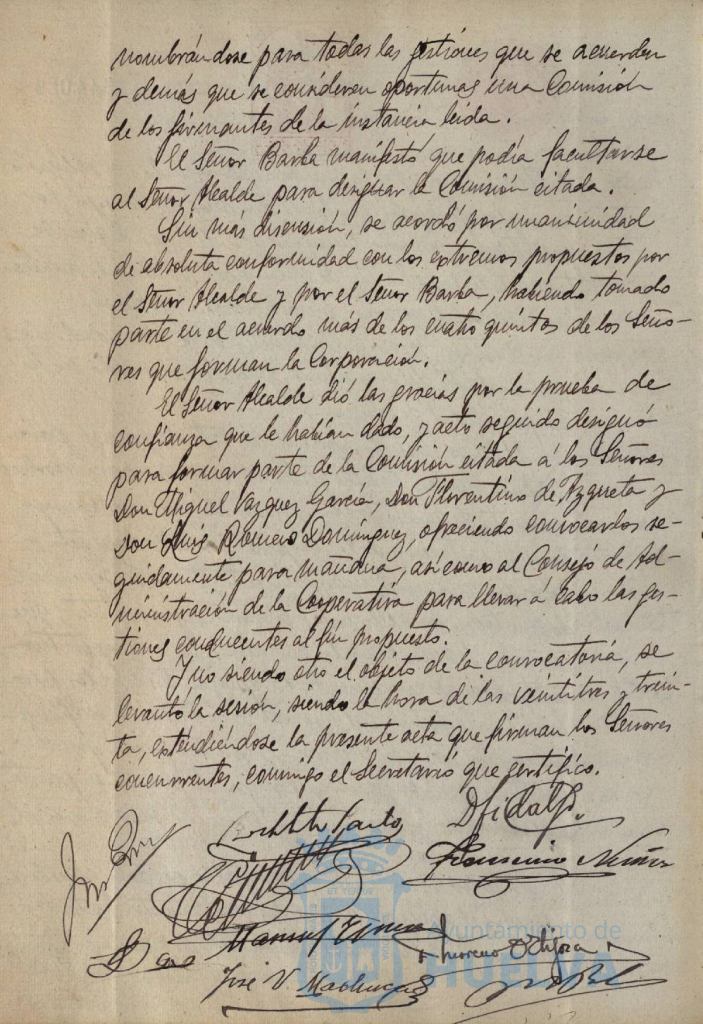 nombrándose para todas las gestiones que se acuerden
y demás que se consideren oportunas una Comisión
de los firmantes de la instancia leida.
El Señor Barba manifestó que podía facultarse
al Señor Alcalde para designar la Comisión citada.
Sin más discusión, se acordó por unanimidad
de absoluta conformidad con los extremos propuestos por
el Señor Alcalde y por el Señor Barba, habiendo tomado
parte en el acuerdo más de los cuatro quintos de los Seño-
res que forman la Corporación.
El Señor Alcalde dió las gracias por la prueba de
confianza que le habían dado, y acto seguido designó
para formar parte de la Comisión citada á los Señores
Don Miguel Vazquez García, Don Florentino de Azqueta y
Don Luis Romero Dominguez, ofreciendo convocarlos se-
guidamente para mañana, asi como al Consejo de Ad-
ministración de la Cooperativa para llevar á cabo las ges-
tiones conducentes al fin propuesto.
Y no siendo otro el objeto de la convocatoria, se
levantó la sesión, siendo la hora de las veintitres y trein-
ta, extendiéndose la presente acta que firman los Señores
concurrentes, conmigo el Secretario que certifico.
D Fidalgo
Nuñez
Manuel
José V. Machuca
Ayuntamiento de
HUELVA